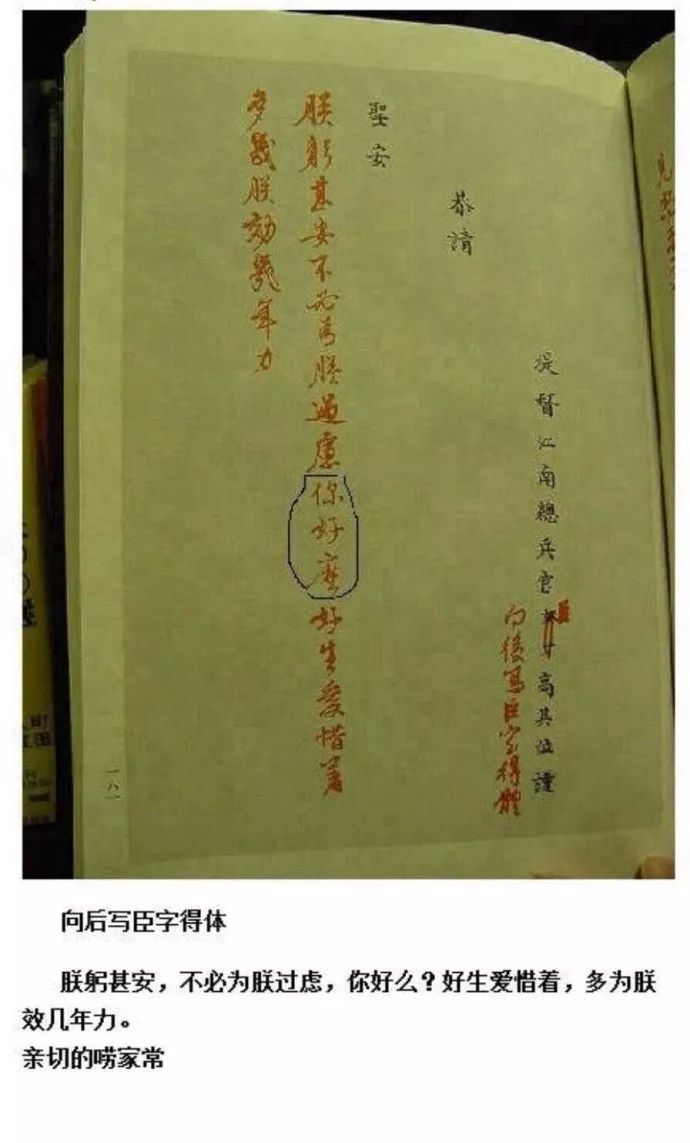 提督江南總兵官奴才高其位謹
臣
向後寫臣字得體
恭請
聖安
朕躬甚安不必為朕過慮你好麼好生愛惜着
多幾朕効幾年力
一八一
向后写臣字得体
朕躬甚安，不必为朕过虑，你好么？好生爱惜着，多为朕
效几年力。
亲切的唠家常